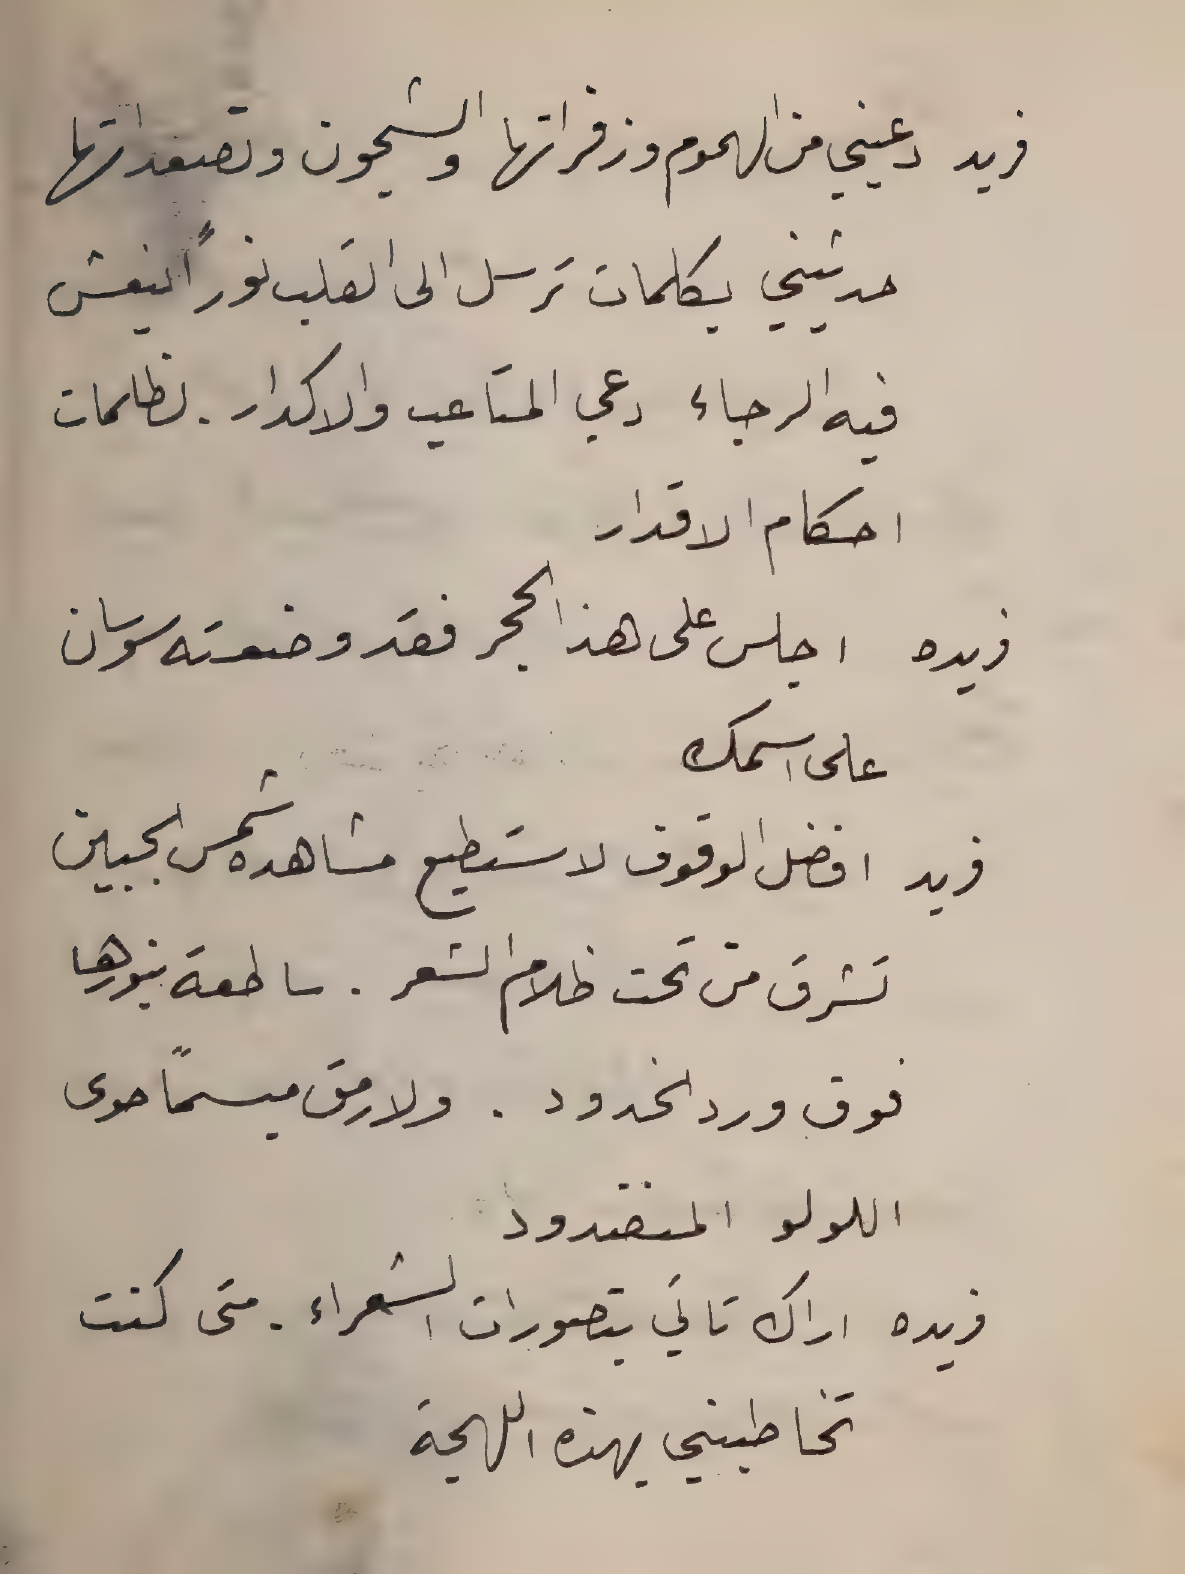 فريد دعيني من الهموم وزفراتها والشجون وتصعداتها
حدثيني بكلمات ترسل الى القلب نوراً ينعش
فيه الرجاء دعي المتاعب والاكدار . لظالمات
احكام الاقدار
فريده اجلس على هذا الحجر فقد وضعته سوسان
على اسمك
فريد افضل الوقوف لاستطيع مشاهده شمس الجبين
تشرق من تحت ظلام الشعر . ساطعة بنورها
فوق ورد الخدود . ولارمق مبسماً حوى
اللولو المنضود
فريده اراك تاتي بتصورات الشعراء . متى كنت
تخاطبني بهذه اللهجة